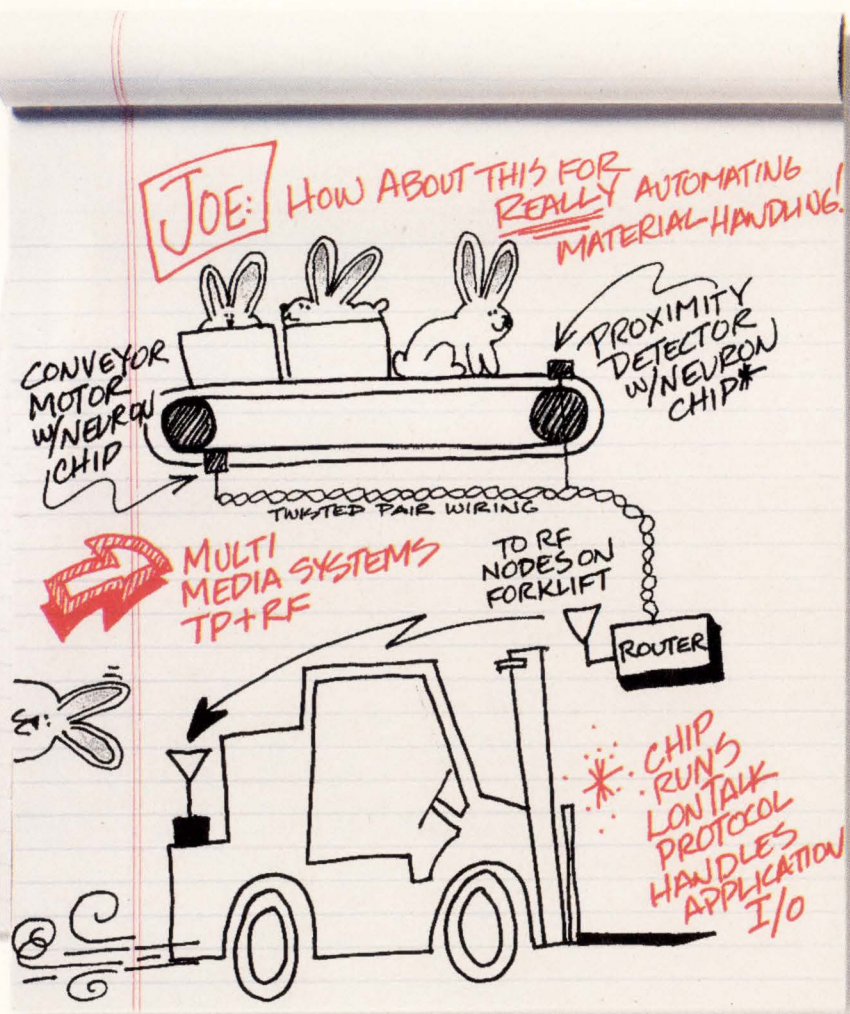 JOE:
HOW ABOUT THIS FOR
REALLY AUTOMATING
MATERIAL HANDLING!
CONVEYOR
MOTOR
W/NEURON
CHIP
PROXIMITY
DETECTOR
W/NEURON
CHIP*
TWISTED PAIR WIRING
MULTI
MEDIA SYSTEMS
TP+RF
TO RF
NODES ON
FORKLIFT
ROUTER
* CHIP
RUNS
LONTALK
PROTOCOL
HANDLES
APPLICATION
I/O